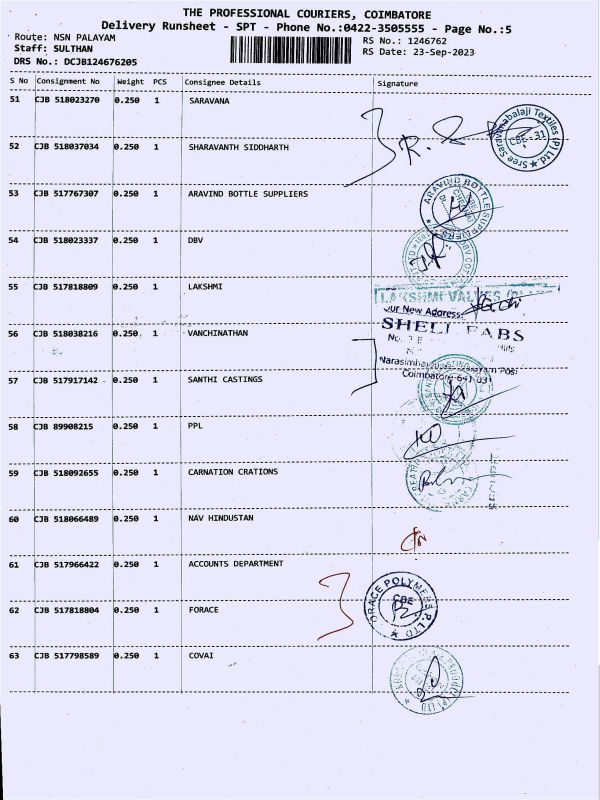 THE PROFESSIONAL COURIERS, COIMBATORE
Delivery Runsheet - SPT - Phone No.:0422-3505555 - Page No.:5
Route: NSN PALAYAM
RS No.: 1246762
Staff: SULTHAN
RS Date: 23-Sep-2023
DRS No.: DCJB124676205
S No Consignment No Weight PCS Consignee Details Signature
51 CJB 518023270 0.250 1 SARAVANA
Sree Saravanabalaji Textiles (P) Ltd
CBE - 31
52 CJB 518037034 0.250 1 SHARAVANTH SIDDHARTH
53 CJB 517767307 0.250 1 ARAVIND BOTTLE SUPPLIERS
ARAVIND BOTTLE SUPPLIERS
54 CJB 518023337 0.250 1 DBV
55 CJB 517818809 0.250 1 LAKSHMI
LAKSHMI VALVES
Our New Address
56 CJB 518038216 0.250 1 VANCHINATHAN
FABS
No.
Coimbatore-641 031
57 CJB 517917142 0.250 1 SANTHI CASTINGS
58 CJB 89908215 0.250 1 PPL
59 CJB 518092655 0.250 1 CARNATION CRATIONS
60 CJB 518066489 0.250 1 NAV HINDUSTAN
61 CJB 517966422 0.250 1 ACCOUNTS DEPARTMENT
62 CJB 517818804 0.250 1 FORACE
POLYMERS P LTD
CBE
63 CJB 517798589 0.250 1 COVAI